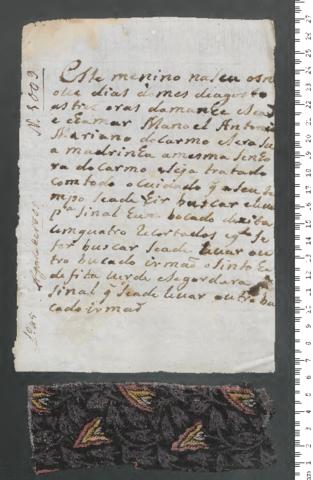 Este menino naseu os n
oue dias do mes de agosto
as tres oras da manhe e se a
de chamar Manoel Antonio
Mariano do Carmo e sera su
a madrinha a mesma senho
ra do Carmo e seja tratado
com todo o cuidado q a seu te
mpo se a de hir buscar e leua
pª sinal hum bocado de xita
em quatro recortados e q se
for buscar se a de leuar ou
tro bocado irmaõ o sinto he
de fita uerde e se gardara
sinal q se a de leuar outro bo
cado irmaõ
Nº 1009